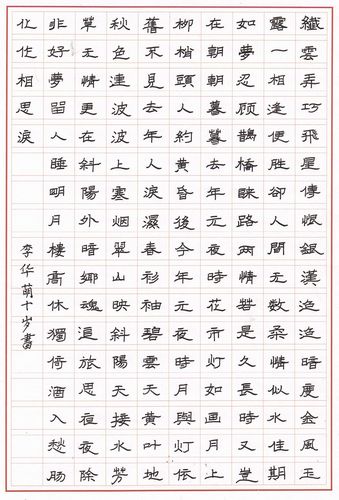 纖雲弄巧飛星傳恨銀漢迢迢暗度金風玉
露一相逢便勝卻人間无數柔情似水佳期
如夢忍顾鵲橋歸路两情若是久長時又豈
在朝朝暮暮去年元夜時花市灯如画月上
柳梢頭人約黄昏後今年元夜時月與灯依
舊不見去年人淚濕春衫袖碧雲天黄葉地
秋色連波波上寒烟翠山映斜陽天接水芳
草无情更在斜陽外暗鄉魂追旅思夜夜除
非好夢留人睡明月樓高休獨倚酒入愁肠
化作相思淚
李华萌十岁書